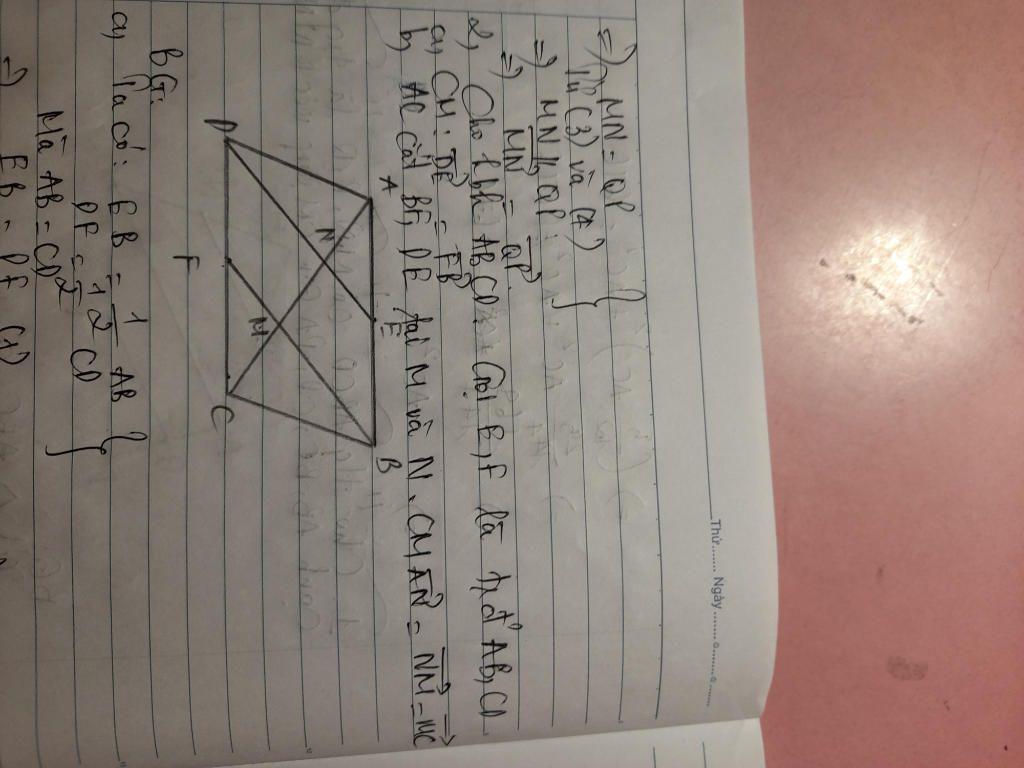 Thứ....... Ngày ................
=> MN = QP }
Từ (3) và (4) }
=> MN // QP
=> \overrightarrow{MN} = \overrightarrow{QP}
2, Cho hbh ABCD. Gọi E, F là t,đ AB, CD
a, CM: \overrightarrow{DE} = \overrightarrow{FB}
b, AC cắt BF, DE tại M và N. CM \overrightarrow{AN} = \overrightarrow{NM} = \overrightarrow{MC}
A E B
N
M
D F C
BG:
a, Ta có: EB = \frac{1}{2} AB }
DF = \frac{1}{2} CD }
Mà AB = CD }
=> EB = DF (1)